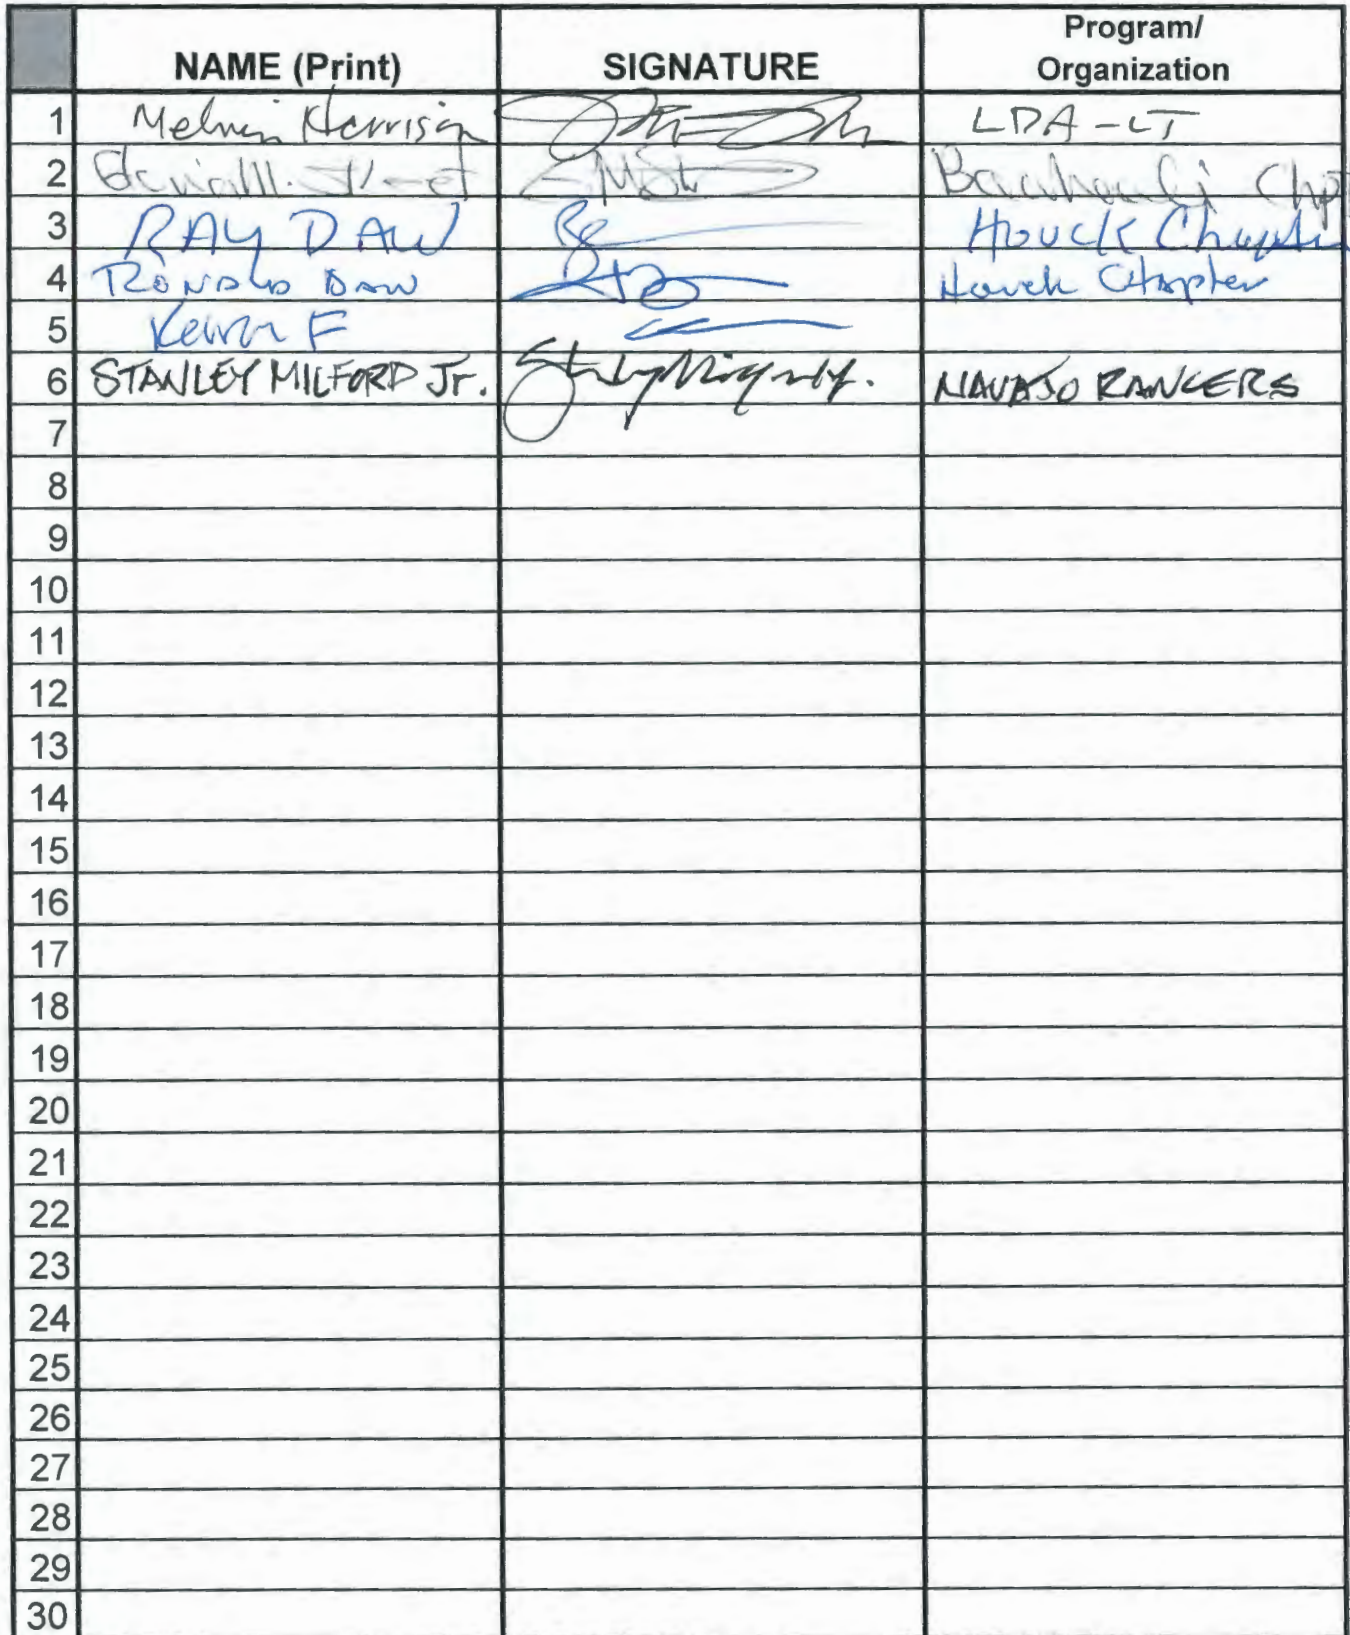 NAME (Print) SIGNATURE Program/
Organization
1 Melvin Harrison LDA-LT
2 Chpt
3 RAY DAW Houck Chapter
4 RONALD DAW Houck Chapter
5 F
6 STANLEY MILFORD Jr. NAVAJO RANGERS
7
8
9
10
11
12
13
14
15
16
17
18
19
20
21
22
23
24
25
26
27
28
29
30